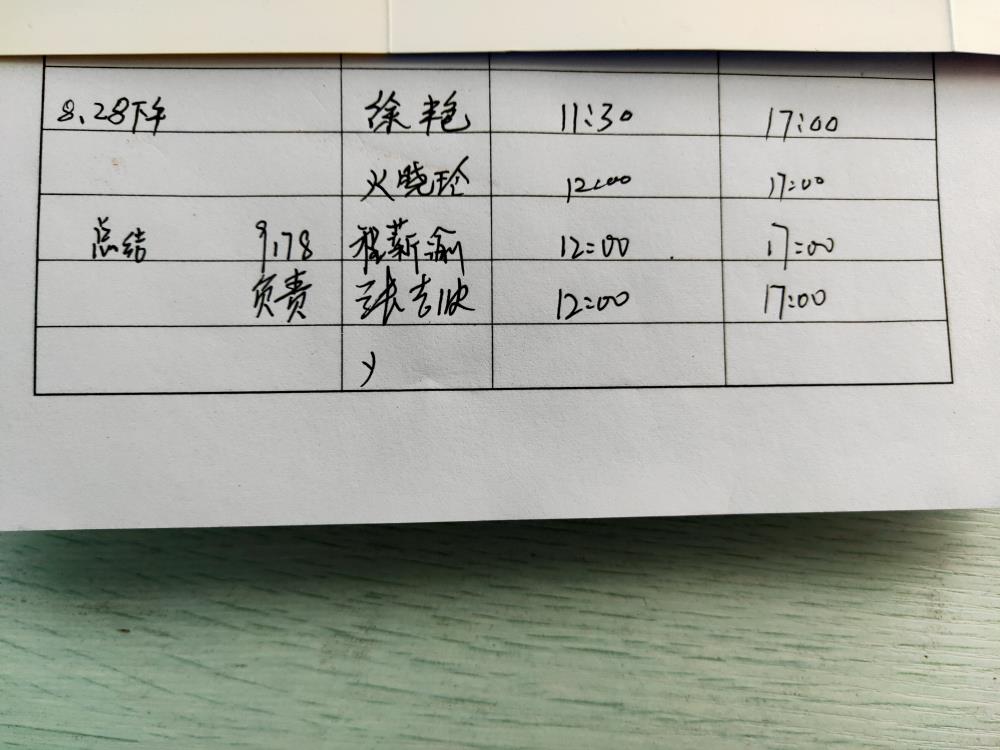 8.28下午 徐艳 11:30 17:00
火晓玲 12:00 17:00
总结 9,178 程薪渝 12:00 17:00
负责 张吉欣 12:00 17:00